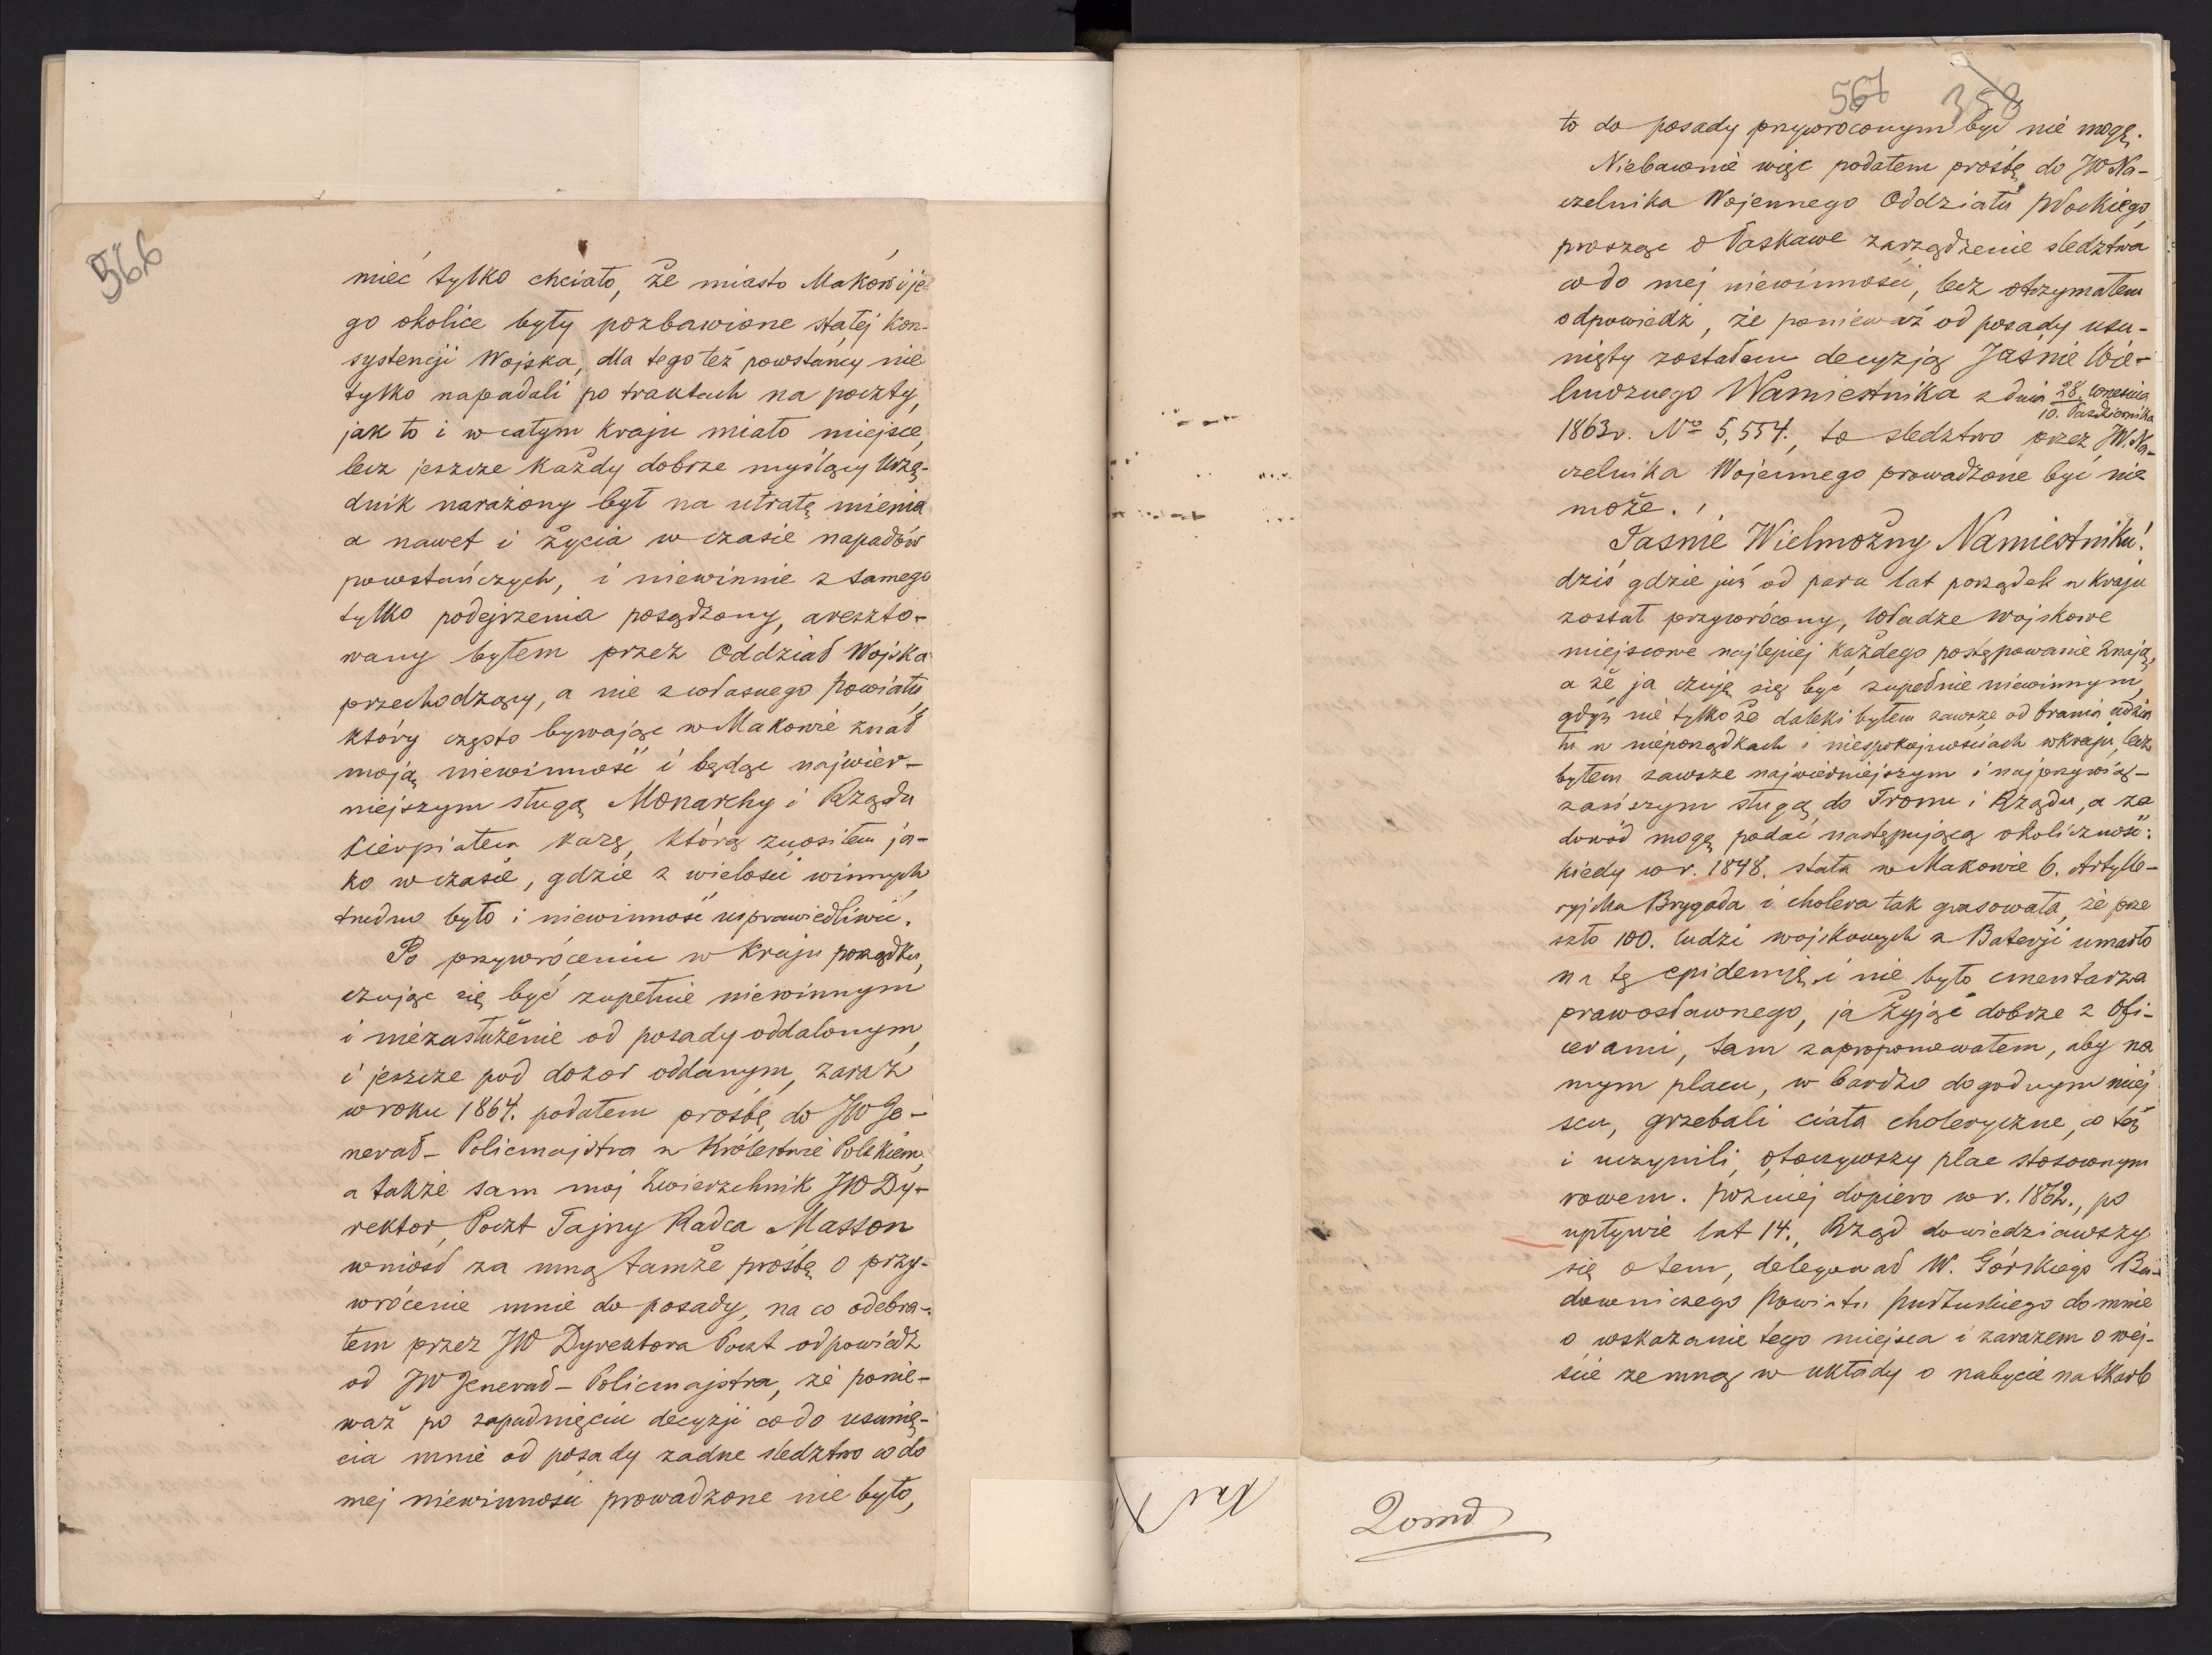 566
mieć tylko chciało, że miasto Maków i je-
go okolice były pozbawione stałej kon-
systencji Wojska, dla tego też powstańcy nie
tylko napadali po traktach na poczty,
jak to i w całym kraju miało miejsce,
lecz jeszcze każdy dobrze myślący Urzę-
dnik narażony był na utratę mienia
a nawet i życia w czasie napadów
powstańczych, i niewinnie z samego
tylko podejrzenia posądzony, areszto-
wany byłem przez Oddział Wojska
przechodzący, a nie z własnego Powiatu,
który często bywając w Makowie znał
moją niewinność i będąc najwier-
niejszym sługą Monarchy i Rządu
cierpiałem karę, którą znosiłem ja-
ko w czasie, gdzie z wielości winnych
trudno było i niewinność usprawiedliwić.
Po przywróceniu w Kraju porządku,
czując się być zupełnie niewinnym
i niezasłużenie od posady oddalonym,
i jeszcze pod dozór oddanym, zaraz
w roku 1864. podałem prośbę do JW Je-
nerał-Policmajstra w Królestwie Polskiem,
a także sam mój Zwierzchnik JW Dy-
rektor Poczt Tajny Radca Masson
wniósł za mną tamże prośbę o przy-
wrócenie mnie do posady, na co odebra-
łem przez JW Dyrektora Poczt odpowiedź
od JW Jenerał-Policmajstra, że ponie-
waż po zapadnięciu decyzji co do usunię-
cia mnie od posady żadne śledztwo co do
mej niewinności prowadzone nie było,
567 358
to do posady przywróconym być nie mogę.
Niebawnie więc podałem prośbę do JW Na-
czelnika Wojennego Oddziału Płockiego,
prosząc o łaskawe zarządzenie śledztwa
co do mej niewinności, lecz otrzymałem
odpowiedź, że ponieważ od posady usu-
nięty zostałem decyzją Jaśnie Wie-
lmożnego Namiestnika z dnia 28. Września
10. Października
1863r. No 5,554., to śledztwo przez JW. Na-
czelnika Wojennego prowadzone być nie
może.
Jaśnie Wielmożny Namiestniku!
dziś gdzie już od paru lat porządek w kraju
został przywrócony, Władze wojskowe
miejscowe najlepiej każdego postępowanie znają,
a że ja czuję się być zupełnie niewinnym,
gdyż nie tylko że daleki byłem zawsze od brania udzia
łu w nieporządkach i niespokojnościach w kraju, lecz
byłem zawsze najwierniejszym i najprzywią-
zańszym sługą do Tronu i Rządu, a za
dowód mogę podać następującą okoliczność:
kiedy w r. 1848. stała w Makowie 6. Artylle-
ryjska Brygada i cholera tak grasowała, że prze
szło 100. ludzi wojskowych z Baterji umarło
na tę epidemję, i nie było cmentarza
prawosławnego, ja żyjąc dobrze z Ofi-
cerami, sam zaproponowałem, aby na
mym placu, w bardzo dogodnym miej
scu, grzebali ciała choleryczne, co też
i uczynili, otoczywszy plac stosownym
rowem. Pozniej dopiero w r. 1862., po
upływie lat 14., Rząd dowiedziawszy
się o tem, delegował W. Górskiego Bu-
downiczego Powiatu Pułtuskiego do mnie
o wskazanie tego miejsca i zarazem o wej-
ście ze mną w układy o nabycie na Skarb